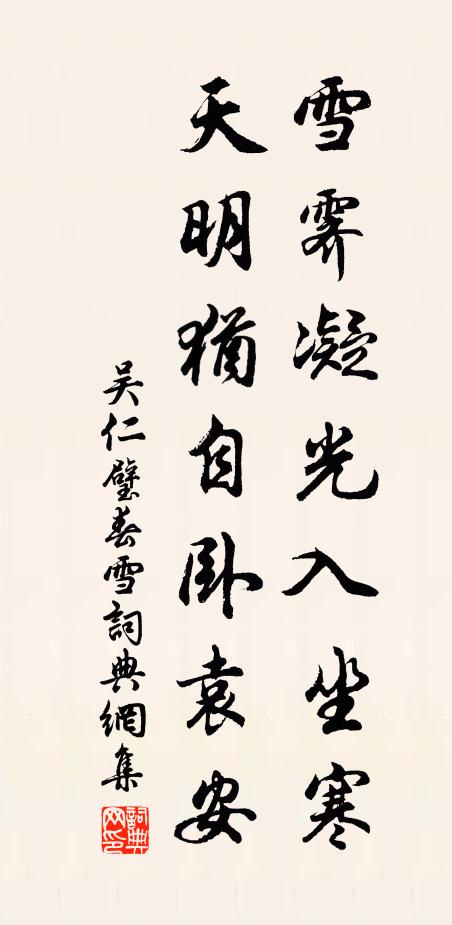 雪霽凝光入坐寒
天明猶自卧袁安
吴仁璧春雪詞典網集
詞典网印